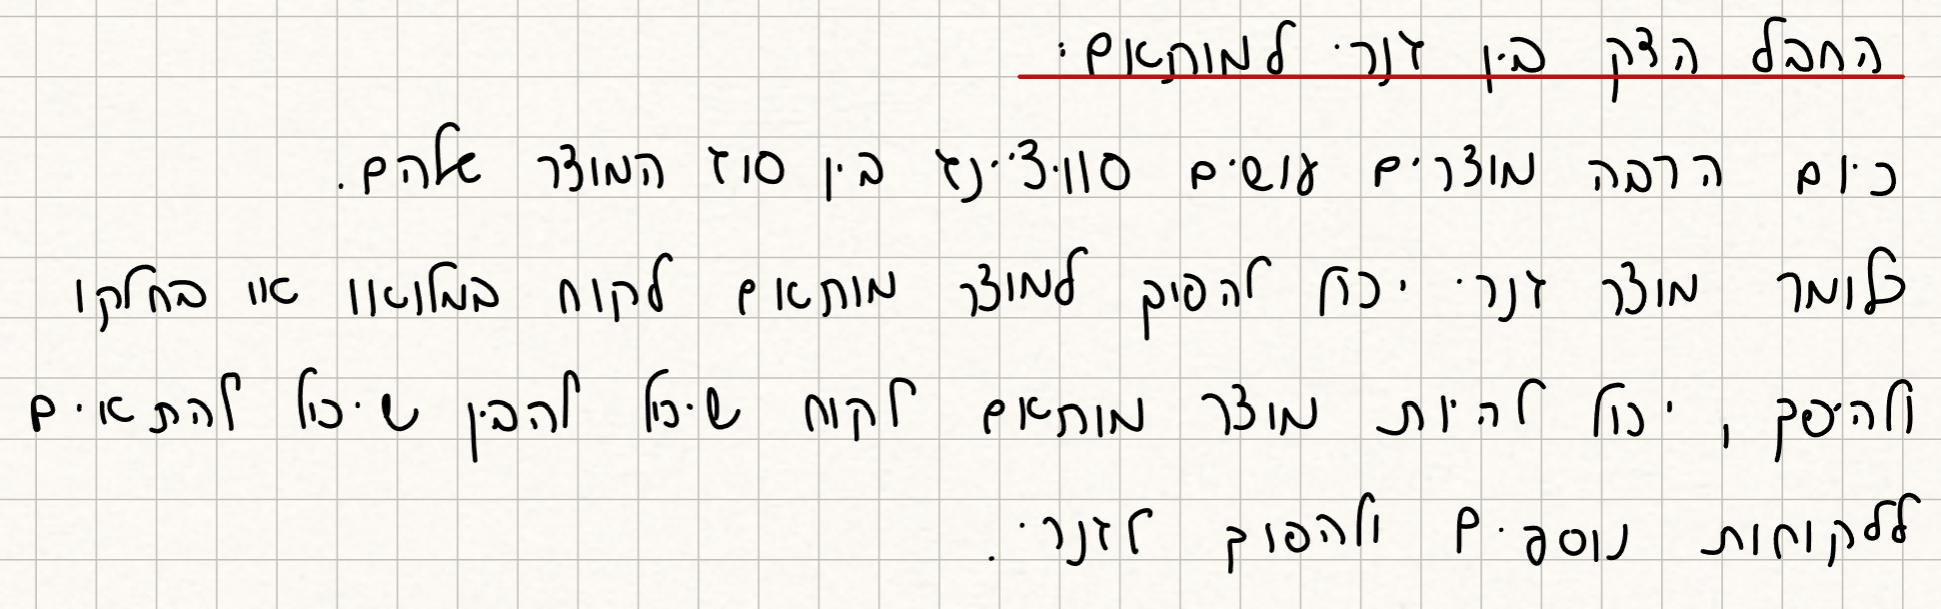 החבל הדק בין זנרי למותאם:
כיום הרבה מוצרים עושים סוויצ'ינג בין סוג המוצר שלהם.
כלומר מוצר זנרי יכול להפוך למוצר מותאם לקוח במלואו או בחלקו
ולהיפך, יכול להיות מוצר מותאם לקוח שיכול להבין שיכול להתאים
ללקוחות נוספים ולהפוך לזנרי.